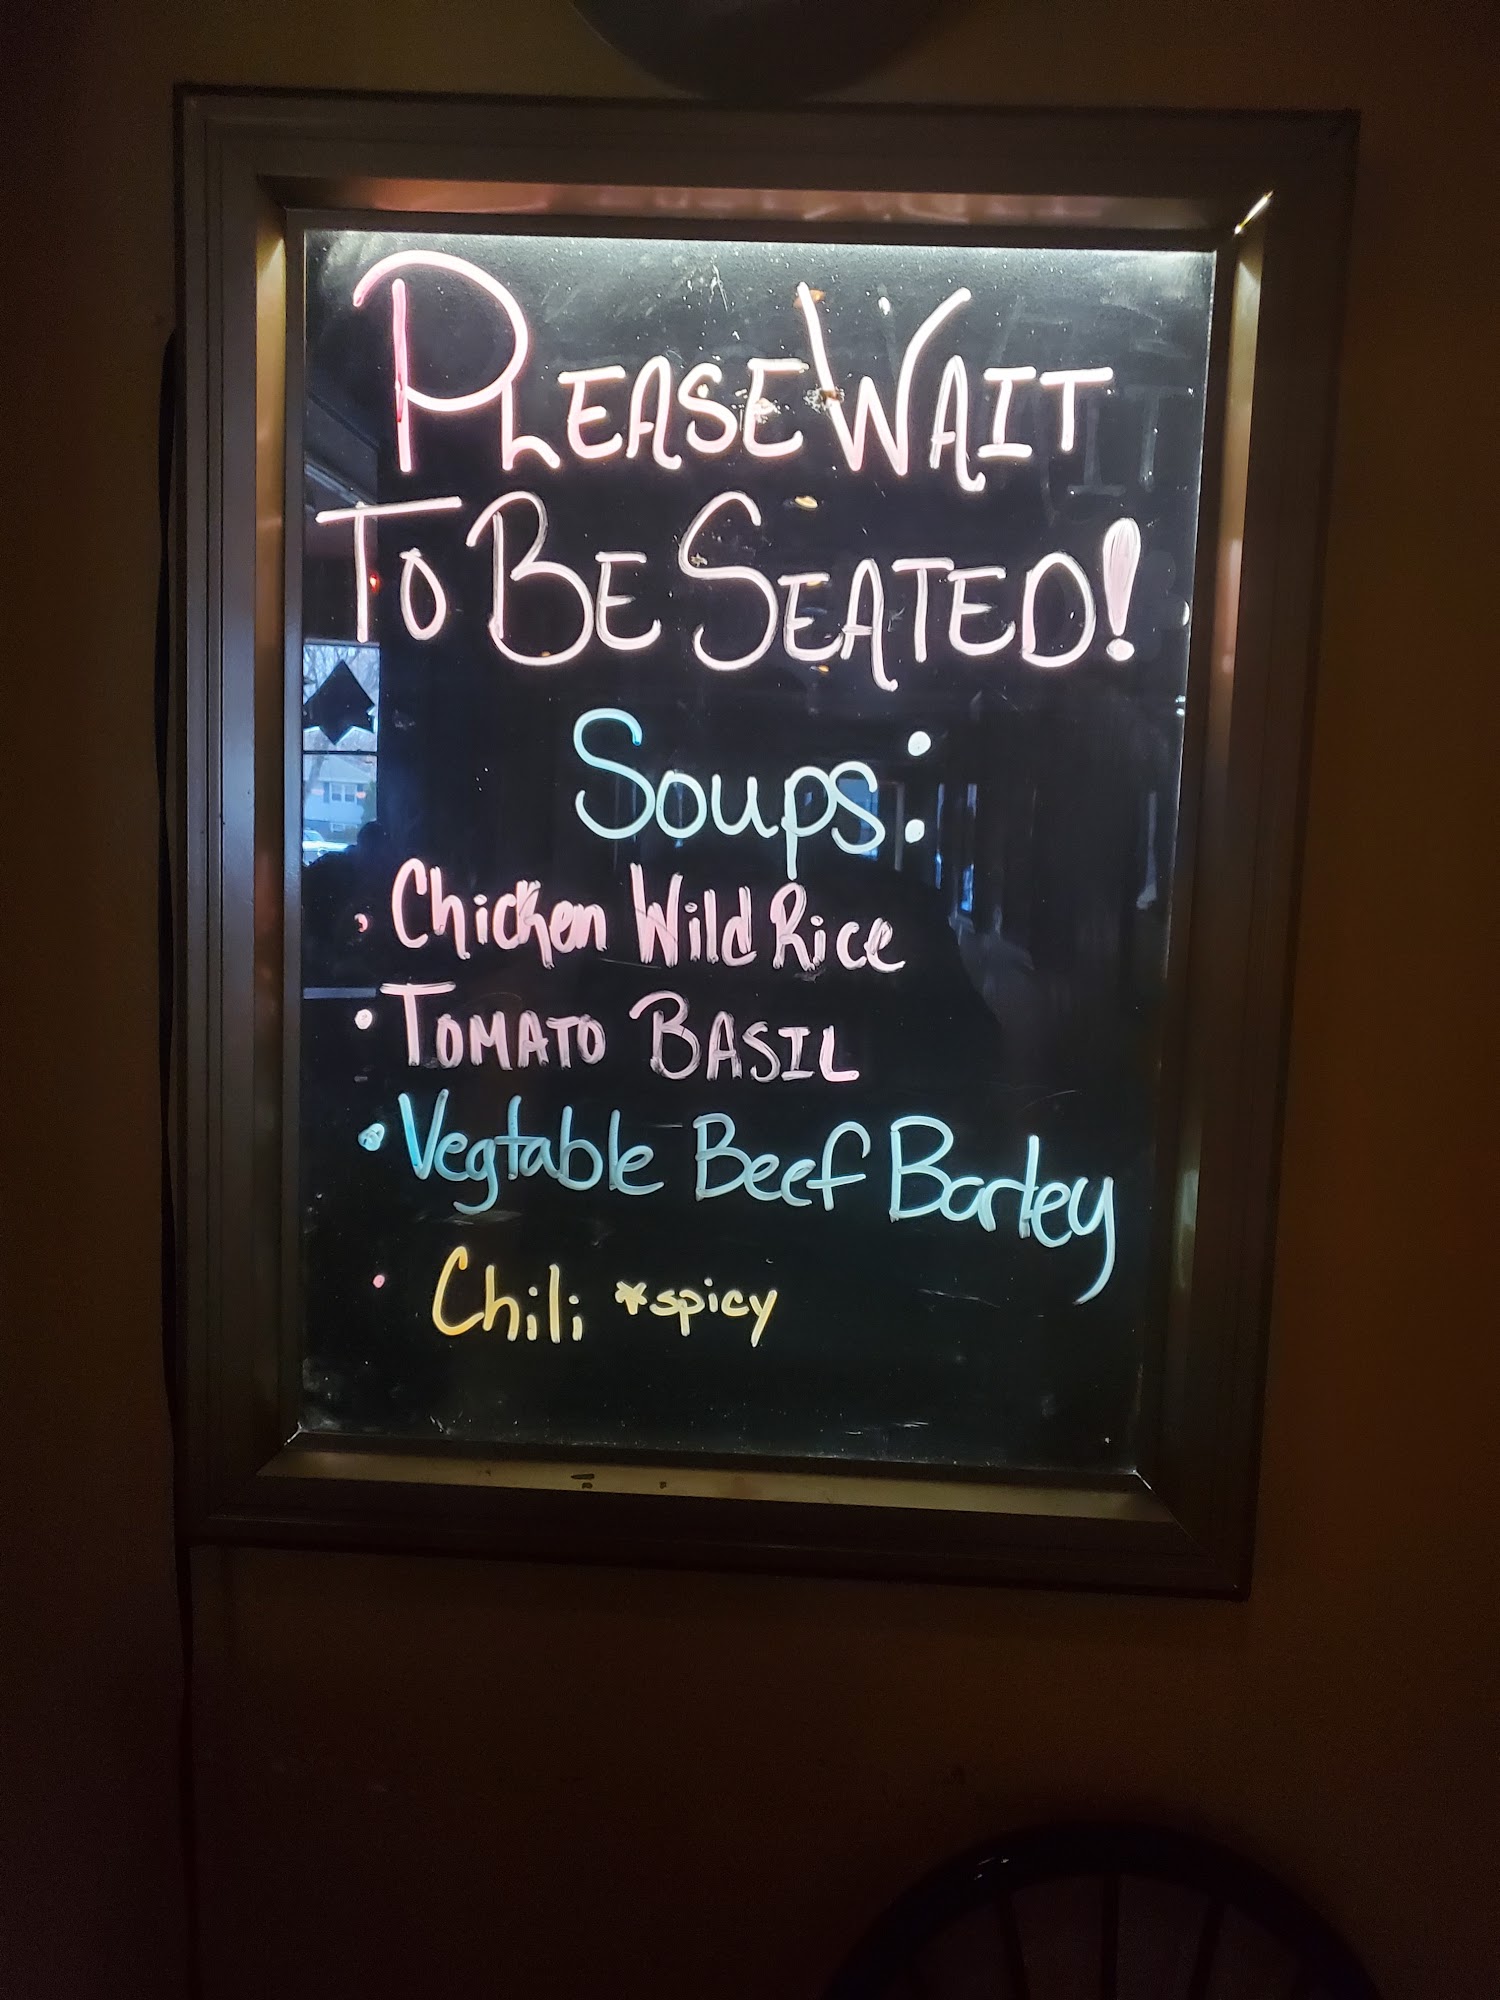 PLEASE WAIT
TO BE SEATED!
Soups:
• Chicken Wild Rice
• TOMATO BASIL
• Vegtable Beef Barley
• Chili *spicy